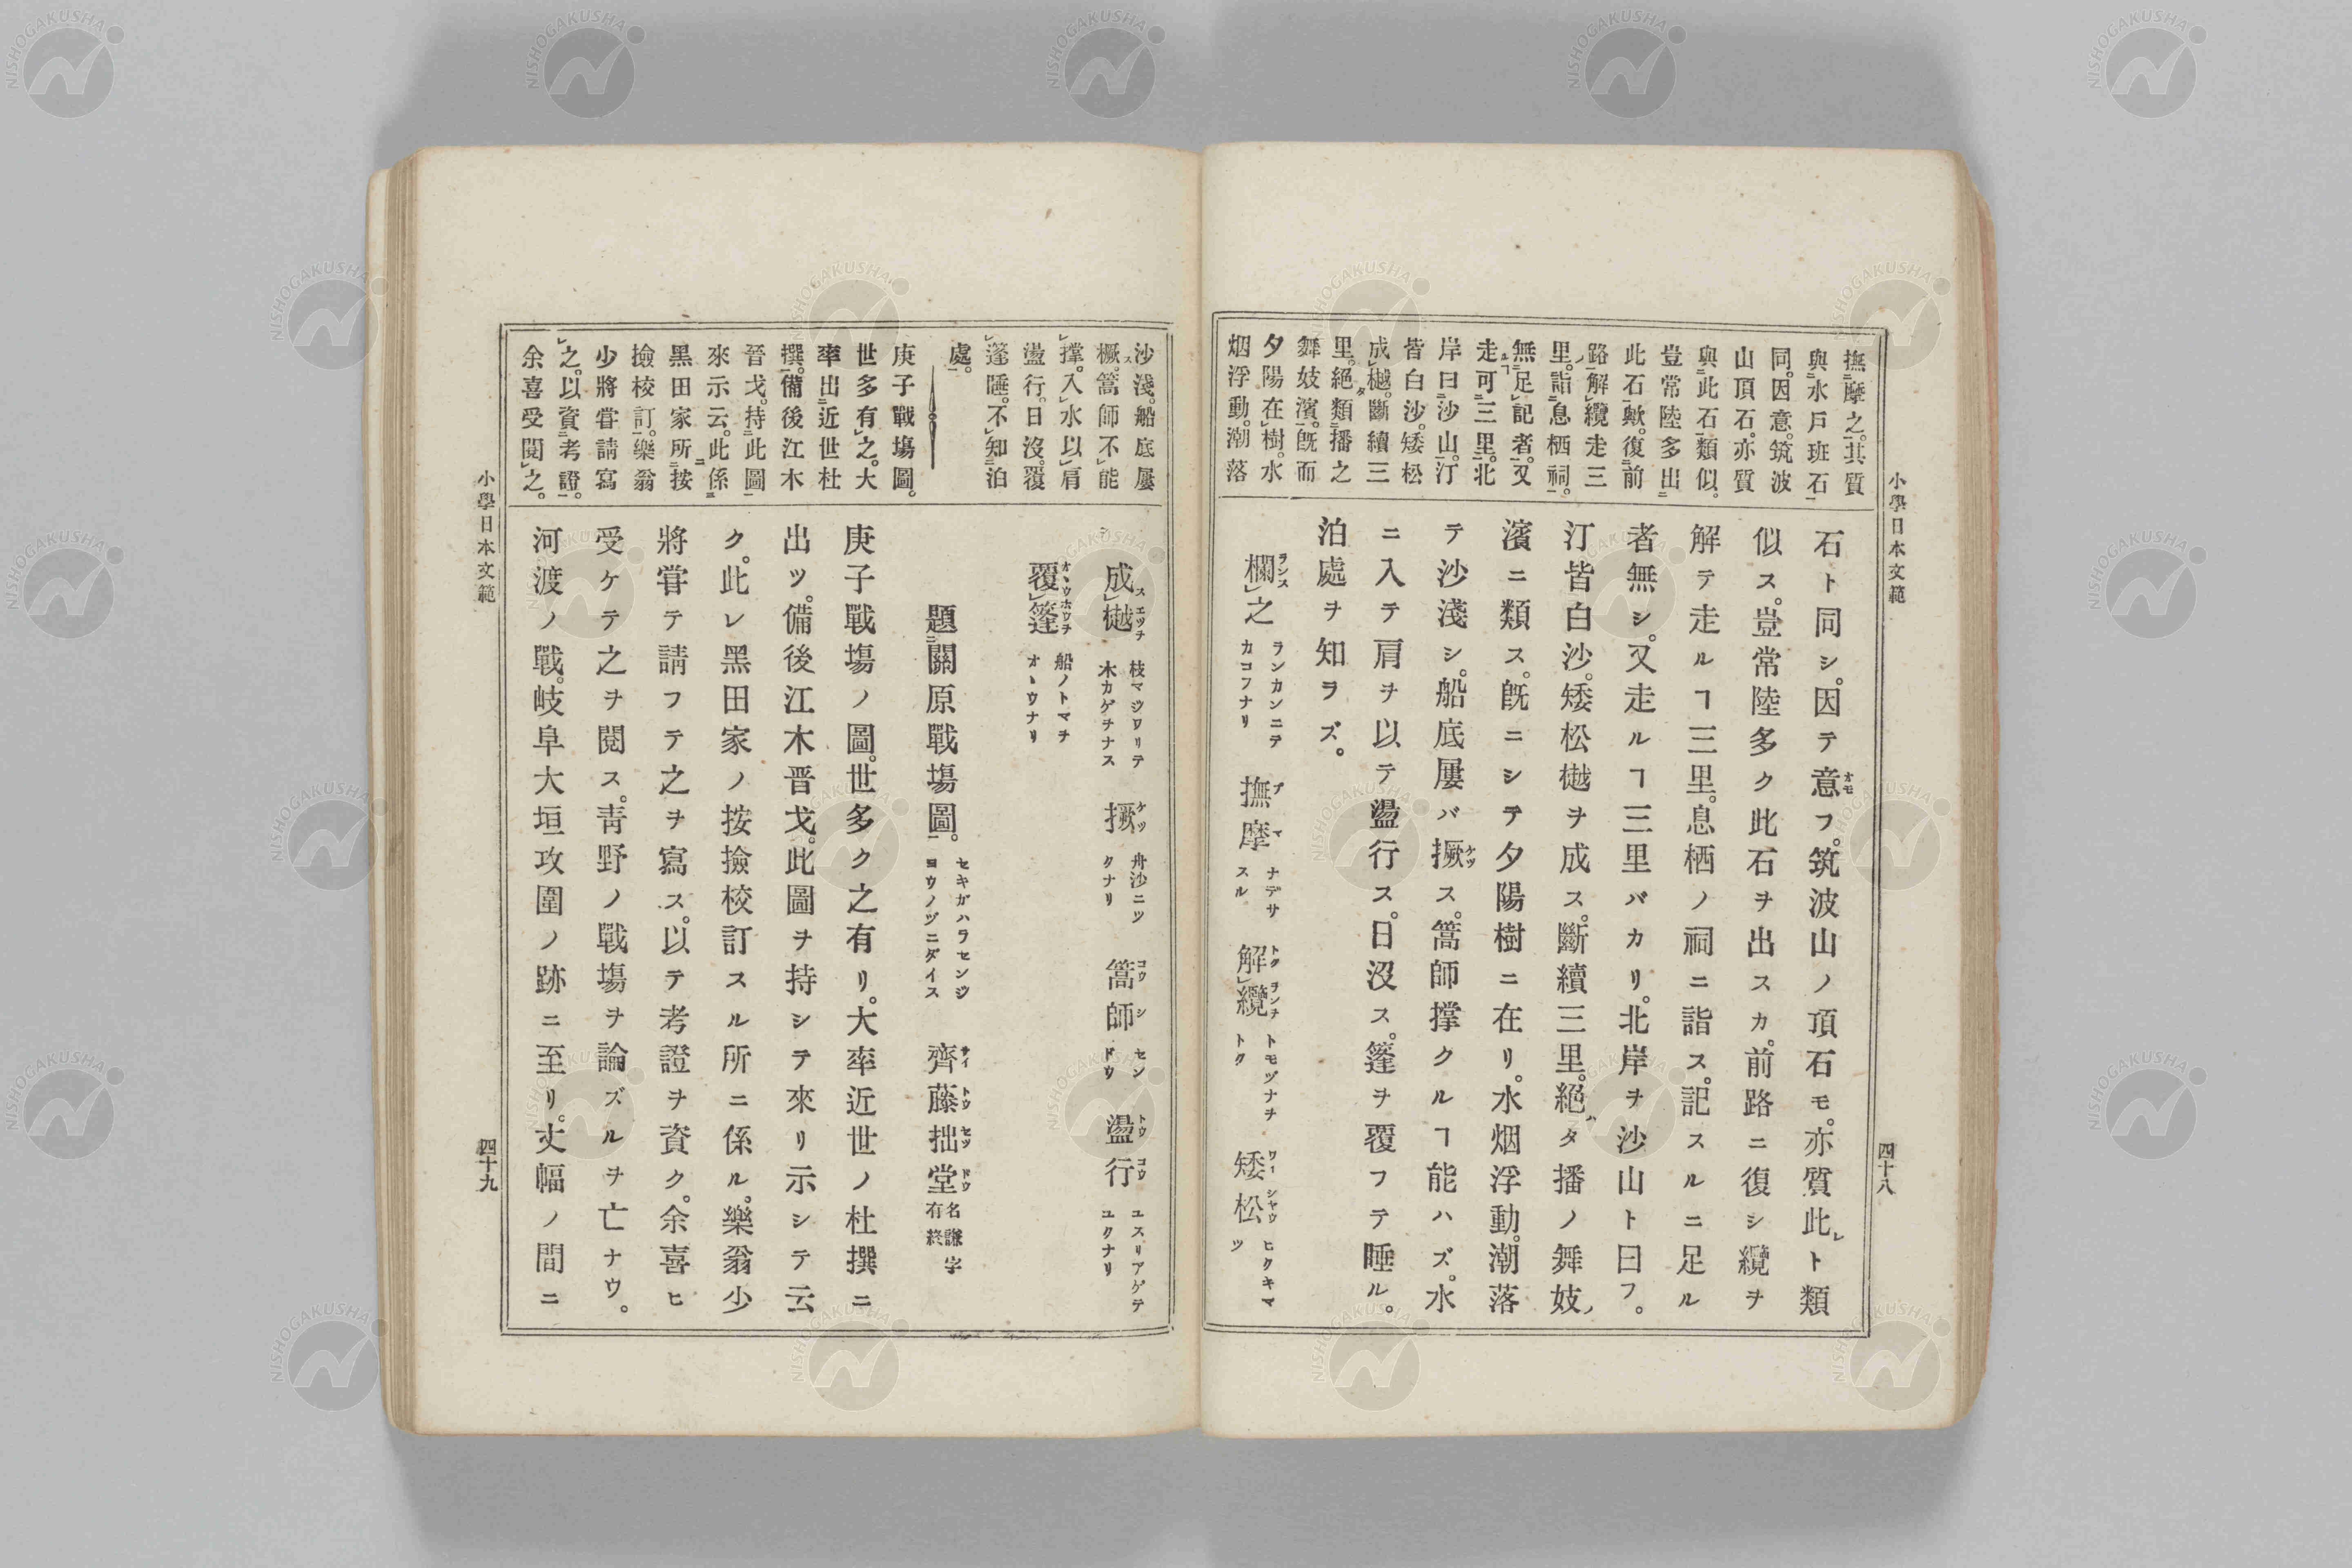 小學日本文範
四十八
撫摩之。其質
與水戸班石
同。因意。筑波
山頂石。亦質
與此石類似。
豈常陸多出
此石歟。復前
路解纜走三
里。詣息栖祠。
無足記者。又
走可三里。北
岸曰沙山。汀
皆白沙。矮松
成樾。斷續三
里。絕類播之
舞妓濱。既而
夕陽在樹。水
烟浮動。潮落
石ト同シ。因テ意フ。筑波山ノ頂石モ。亦質此レト類
似ス。豈常陸多ク此石ヲ出スカ。前路ニ復シ纜ヲ
解テ走ルヿ三里。息栖ノ祠ニ詣ス。記スルニ足ル
者無シ。又走ルヿ三里バカリ。北岸ヲ沙山ト曰フ。
汀皆白沙。矮松樾ヲ成ス。斷續三里。絕ハタ播ノ舞妓ノ
濱ニ類ス。既ニシテ夕陽樹ニ在リ。水烟浮動。潮落
テ沙淺シ。船底屢バ撅ス。篙師撑クルヿ能ハズ。水
ニ入テ肩ヲ以テ盪行ス。日沒ス。篷ヲ覆フテ睡ル。
泊處ヲ知ラズ。
欄之 ランカンニテカコフナリ 撫摩 ナデサスル 解纜 トモヅナヲトク 矮松 ヒクキマツ
沙淺。船底屢
橛。篙師不能
撑。入水以肩
盪行。日沒。覆
篷睡。不知泊
處。
庚子戰場圖。
世多有之。大
率出近世杜
撰。備後江木
晉戈。持此圖
來示云。此係
黑田家所按
撿校訂。樂翁
少將甞請寫
之。以資考證。
余喜受閱之。
成樾 枝マジワリテ木カゲヲナス 撅 舟沙ニツクナリ 篙師 センドウ 盪行 ユスリアゲテユクナリ
覆篷 船ノトマヲオヽウナリ
題關原戰場圖。 セキガハラセンジヨウノヅニダイス 齊藤拙堂 名謙字有終
庚子戰場ノ圖。世多ク之有リ。大率近世ノ杜撰ニ
出ツ。備後江木晋戈。此圖ヲ持シテ來リ示シテ云
ク。此レ黑田家ノ按撿校訂スル所ニ係ル。樂翁少
將甞テ請フテ之ヲ寫ス。以テ考證ヲ資ク。余喜ヒ
受ケテ之ヲ閱ス。靑野ノ戰場ヲ論ズルヲ亡ナウ。
河渡ノ戰。岐阜大垣攻圍ノ跡ニ至リ。丈幅ノ間ニ
小學日本文範
四十九